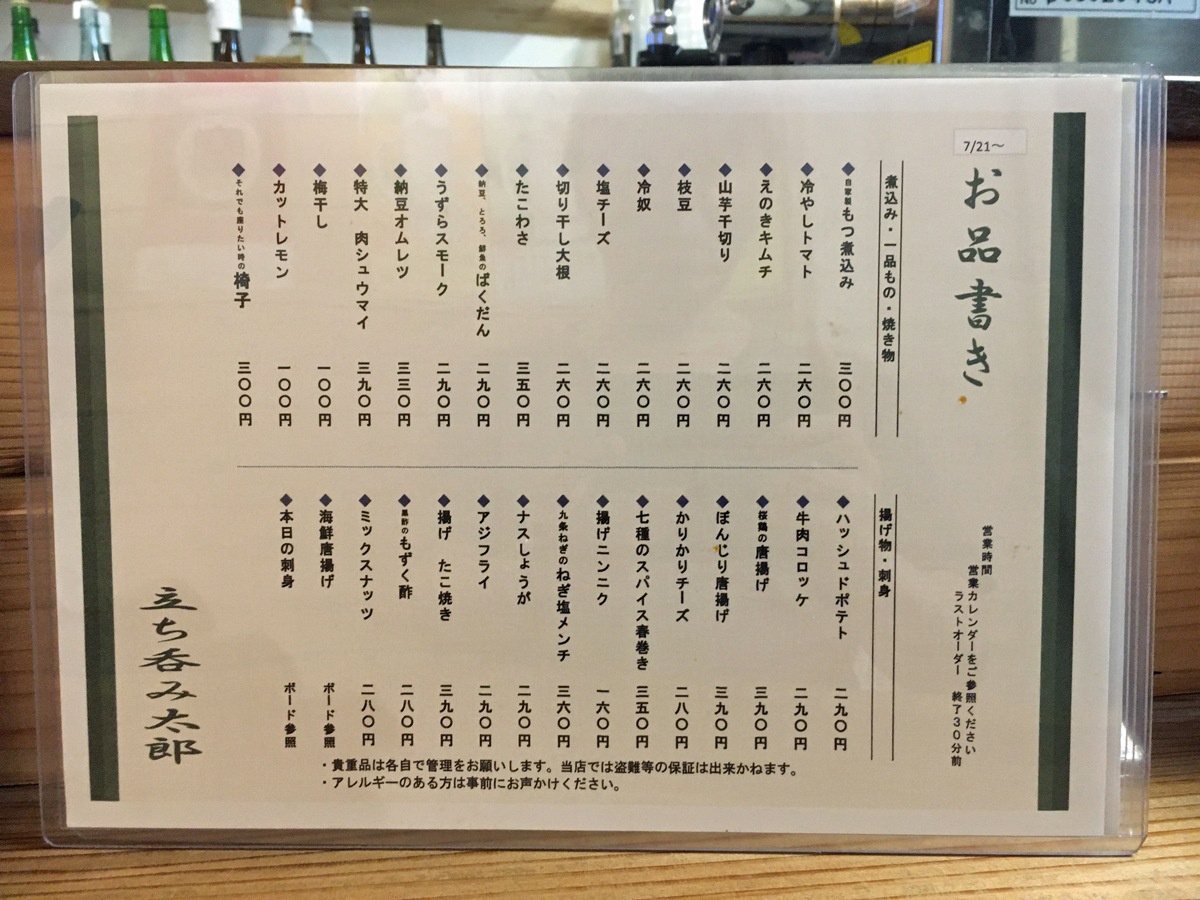 7/21～
お品書き
営業時間
営業カレンダーをご参照ください
ラストオーダー 終了30分前
煮込み・一品もの・焼き物
◆自家製もつ煮込み 三〇〇円
◆冷やしトマト 二六〇円
◆えのきキムチ 二六〇円
◆山芋千切り 二六〇円
◆枝豆 二六〇円
◆冷奴 二六〇円
◆塩チーズ 二六〇円
◆切り干し大根 二六〇円
◆たこわさ 三五〇円
◆納豆、とろろ、鮮魚のばくだん 二九〇円
◆うずらスモーク 二九〇円
◆納豆オムレツ 三三〇円
◆特大 肉シュウマイ 三九〇円
◆梅干し 一〇〇円
◆カットレモン 一〇〇円
◆それでも座りたい時の椅子 三〇〇円
揚げ物・刺身
◆ハッシュドポテト 二九〇円
◆牛肉コロッケ 二九〇円
◆桜鶏の唐揚げ 三九〇円
◆ぼんじり唐揚げ 三九〇円
◆かりかりチーズ 二八〇円
◆七種のスパイス春巻き 三五〇円
◆揚げニンニク 一六〇円
◆九条ねぎのねぎ塩メンチ 三六〇円
◆ナスしょうが 二九〇円
◆アジフライ 二九〇円
◆揚げ たこ焼き 三九〇円
◆黒酢のもずく酢 二八〇円
◆ミックスナッツ 二八〇円
◆海鮮唐揚げ ボード参照
◆本日の刺身 ボード参照
・貴重品は各自で管理をお願いします。当店では盗難等の保証は出来かねます。
・アレルギーのある方は事前にお声かけください。
立ち呑み太郎